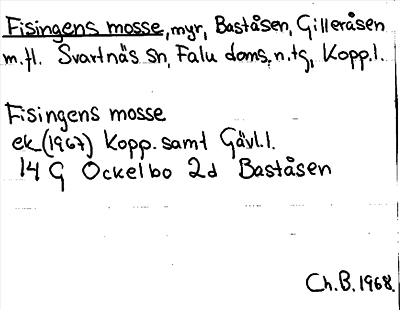 Fisingens mosse, myr, Baståsen, Gilleråsen
m.fl. Svartnäs sn, Falu doms. n. tg, Kopp.l.
Fisingens mosse
ek (1967) Kopp. samt Gävl.l.
14 G Ockelbo 2d Baståsen
Ch.B. 1968.